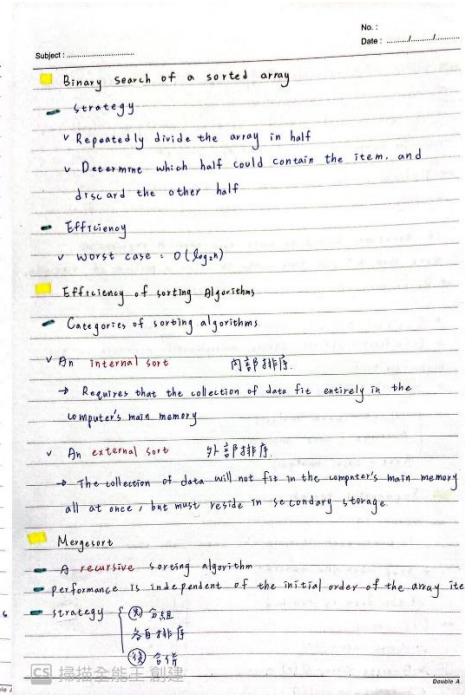 No. :
Date : ......../......../........
Subject : ................................
Binary search of a sorted array
strategy
v Repeatedly divide the array in half
v Determine which half could contain the item, and
discard the other half
Efficiency
v worst case : O(log₂n)
Efficiency of sorting Algorithms
Categories of sorting algorithms
v An internal sort 內部排序.
→ Requires that the collection of data fit entirely in the
computer's main memory
v An external sort 外部排序.
→ The collection of data will not fit in the computer's main memory
all at once, but must reside in secondary storage
Mergesort
A recursive sorting algorithm
performance is independent of the initial order of the array ite
strategy { 先 分組
各自排序
後 合併
CS 掃描全能王 創建
Double A